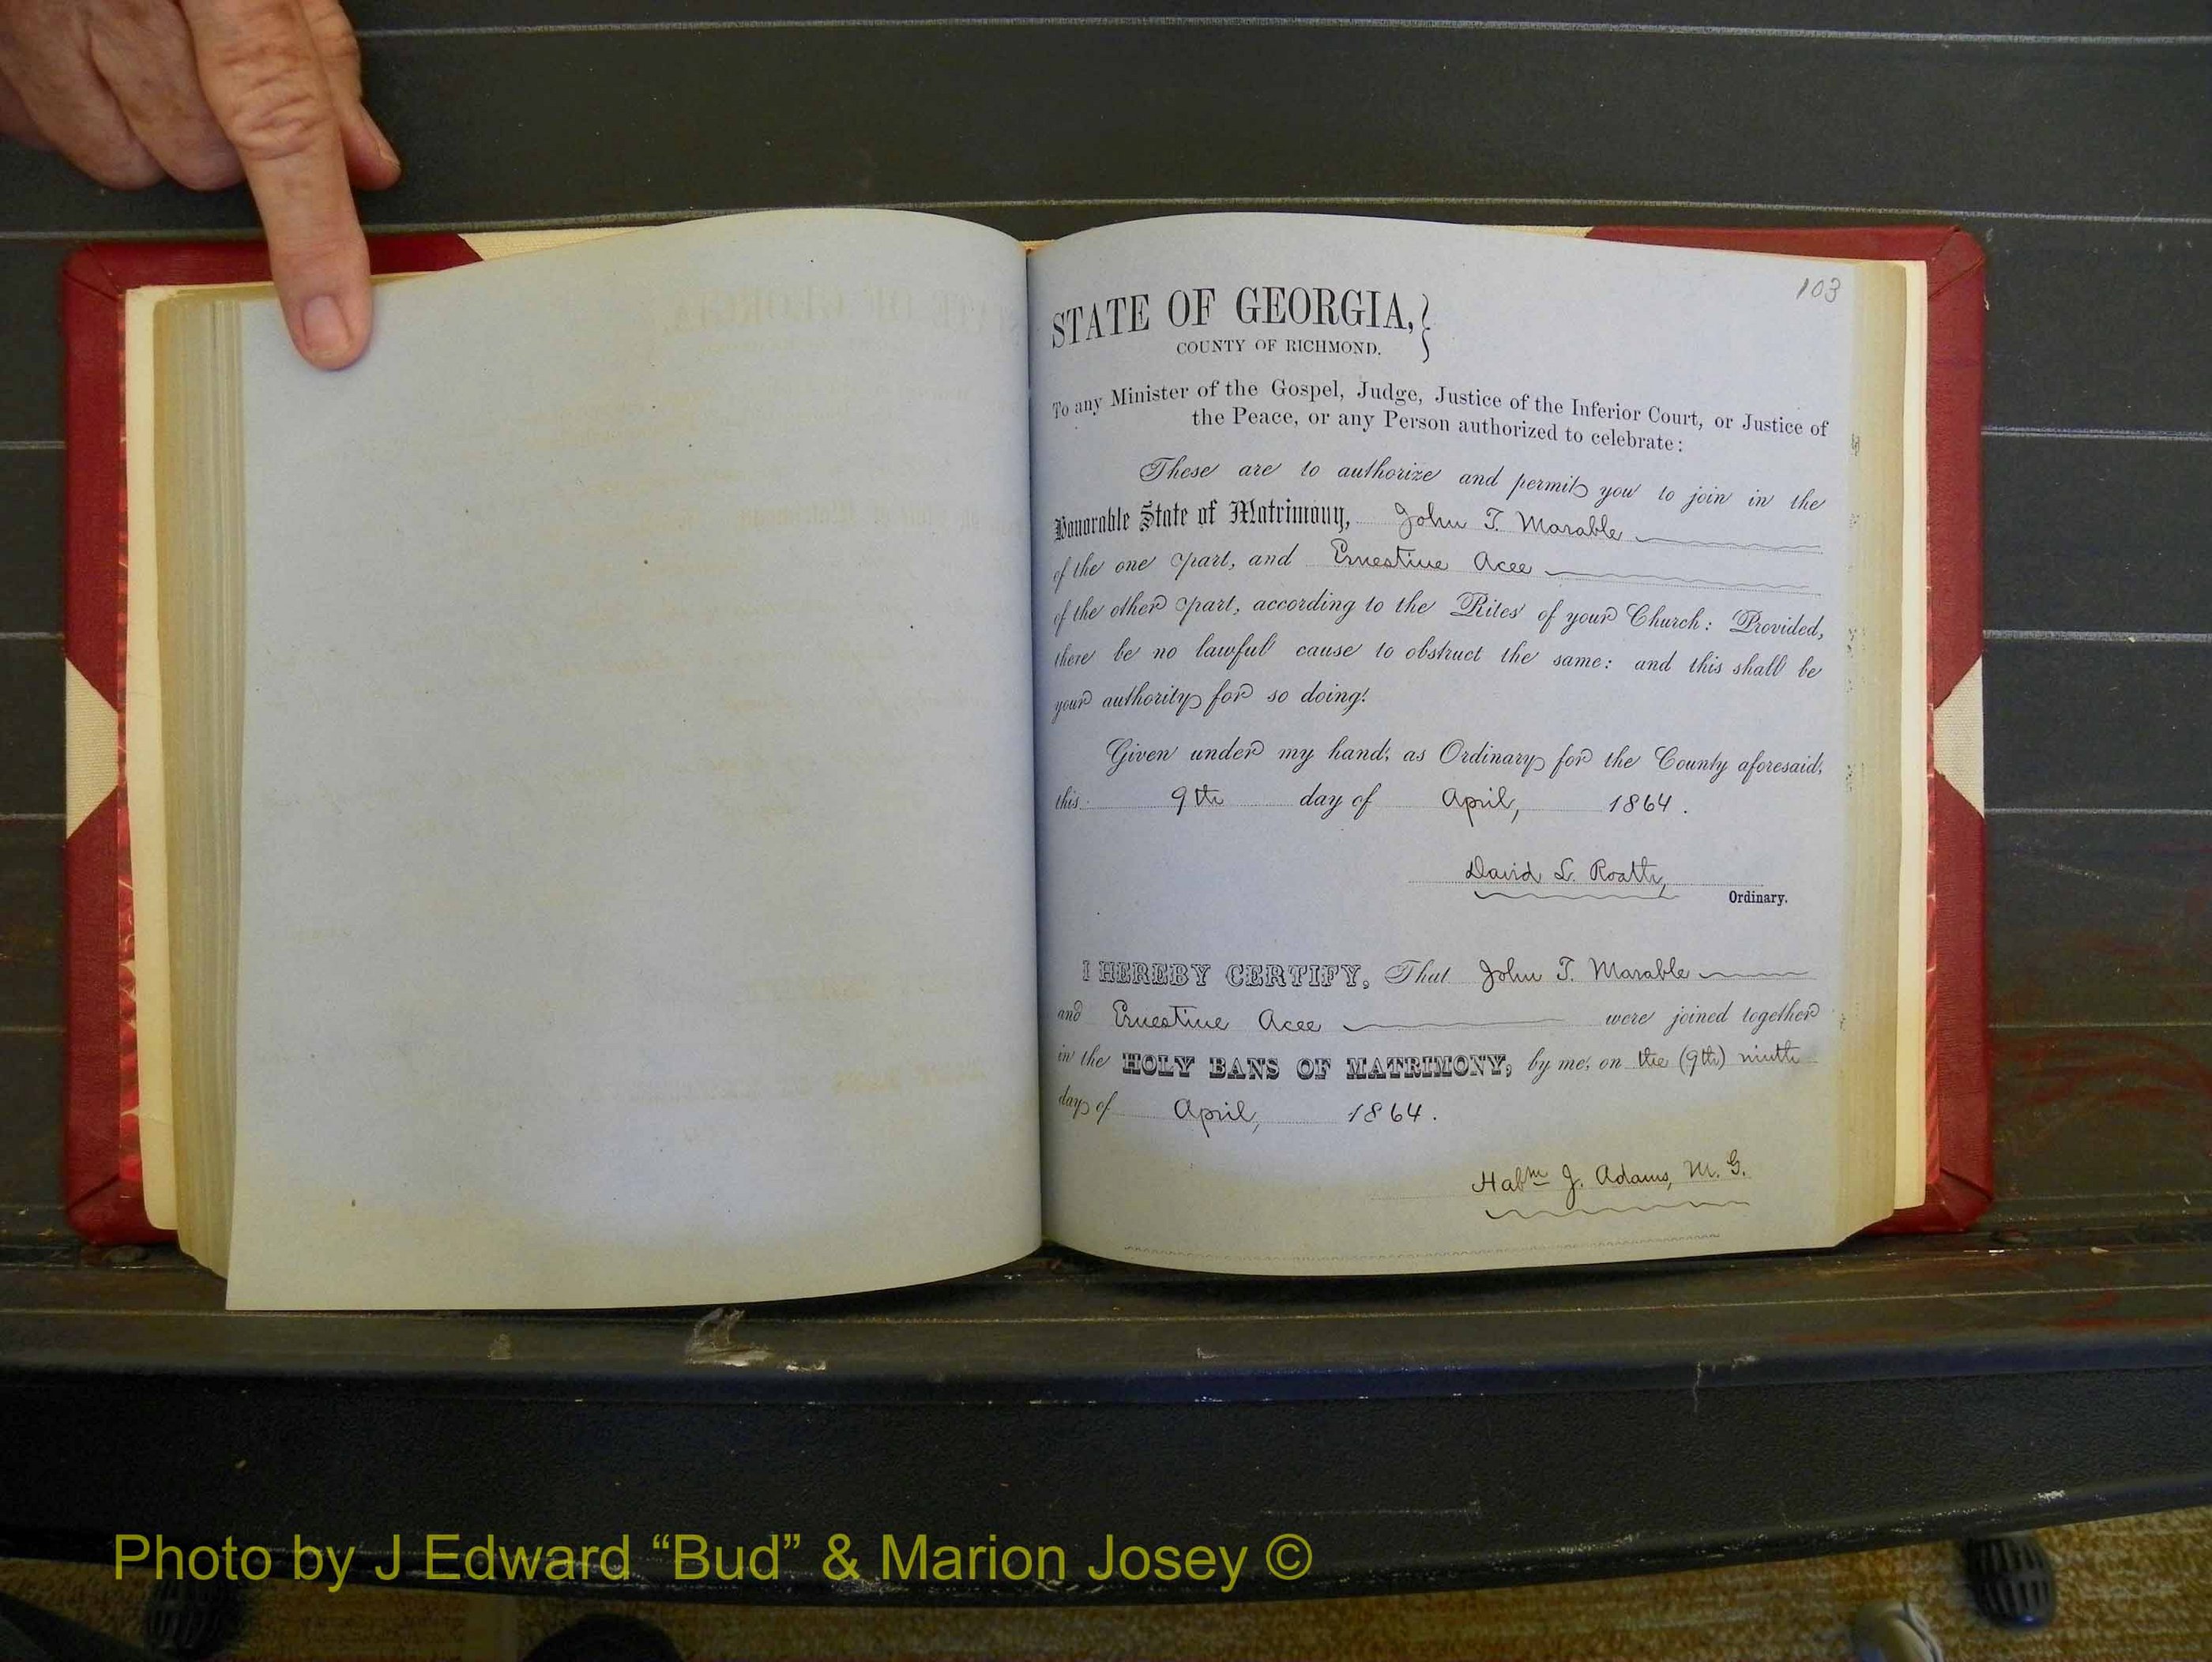 103
STATE OF GEORGIA,
COUNTY OF RICHMOND.
To any Minister of the Gospel, Judge, Justice of the Inferior Court, or Justice of
the Peace, or any Person authorized to celebrate:
These are to authorize and permit you to join in the
Honorable State of Matrimony, John T. Marable
of the one part, and Ernestine Acee
of the other part, according to the Rites of your Church: Provided,
there be no lawful cause to obstruct the same: and this shall be
your authority for so doing.
Given under my hand, as Ordinary for the County aforesaid,
this 9th day of April, 1864.
David L. Roath,
Ordinary.
I HEREBY CERTIFY, That John T. Marable
and Ernestine Acee were joined together
in the HOLY BANS OF MATRIMONY, by me, on the (9th) ninth
day of April, 1864.
Habm J. Adams, M. G.
Photo by J Edward “Bud” & Marion Josey ©